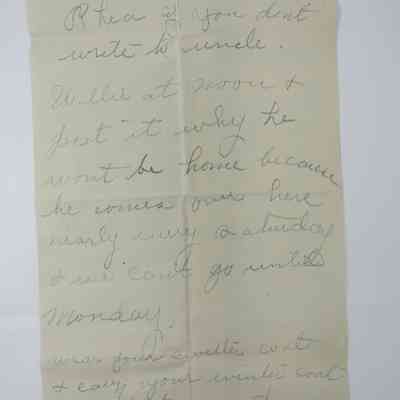 Rhea if you dont
write to uncle.
Willie at noon &
post it why he
wont be home because
he comes over here
nearly every Saturday
& we cant go until
Monday.
wear your sweater coat
& carry your winter coat